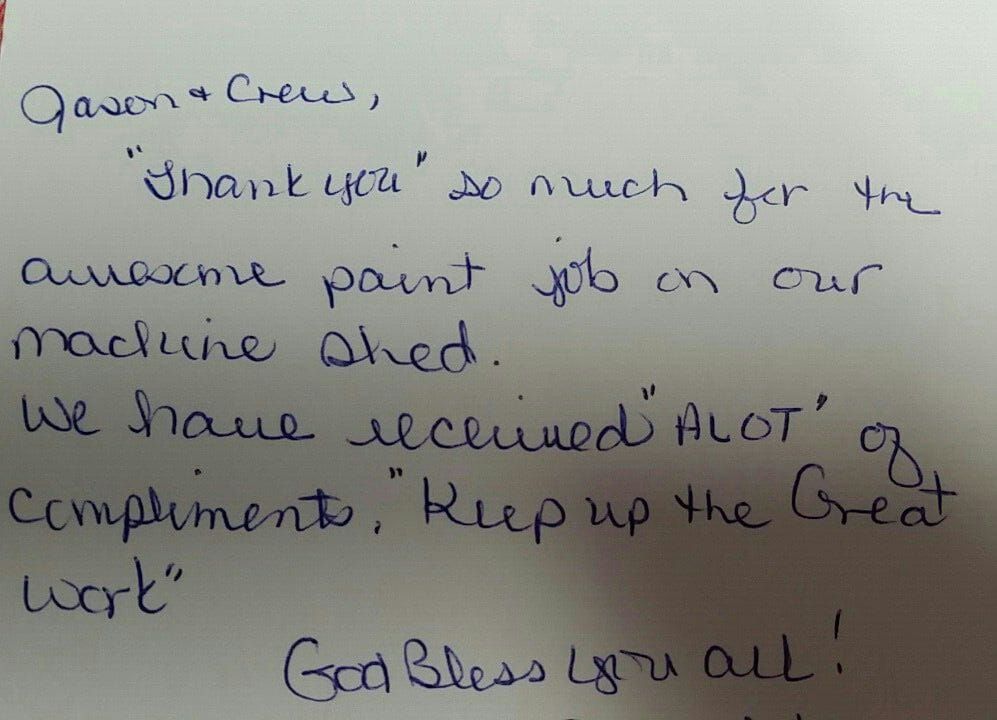 Jason & Crew,
"Thank you" so much for the
awesome paint job on our
machine shed.
We have received "ALOT" of
compliments, "Keep up the Great
work"
God Bless you all!